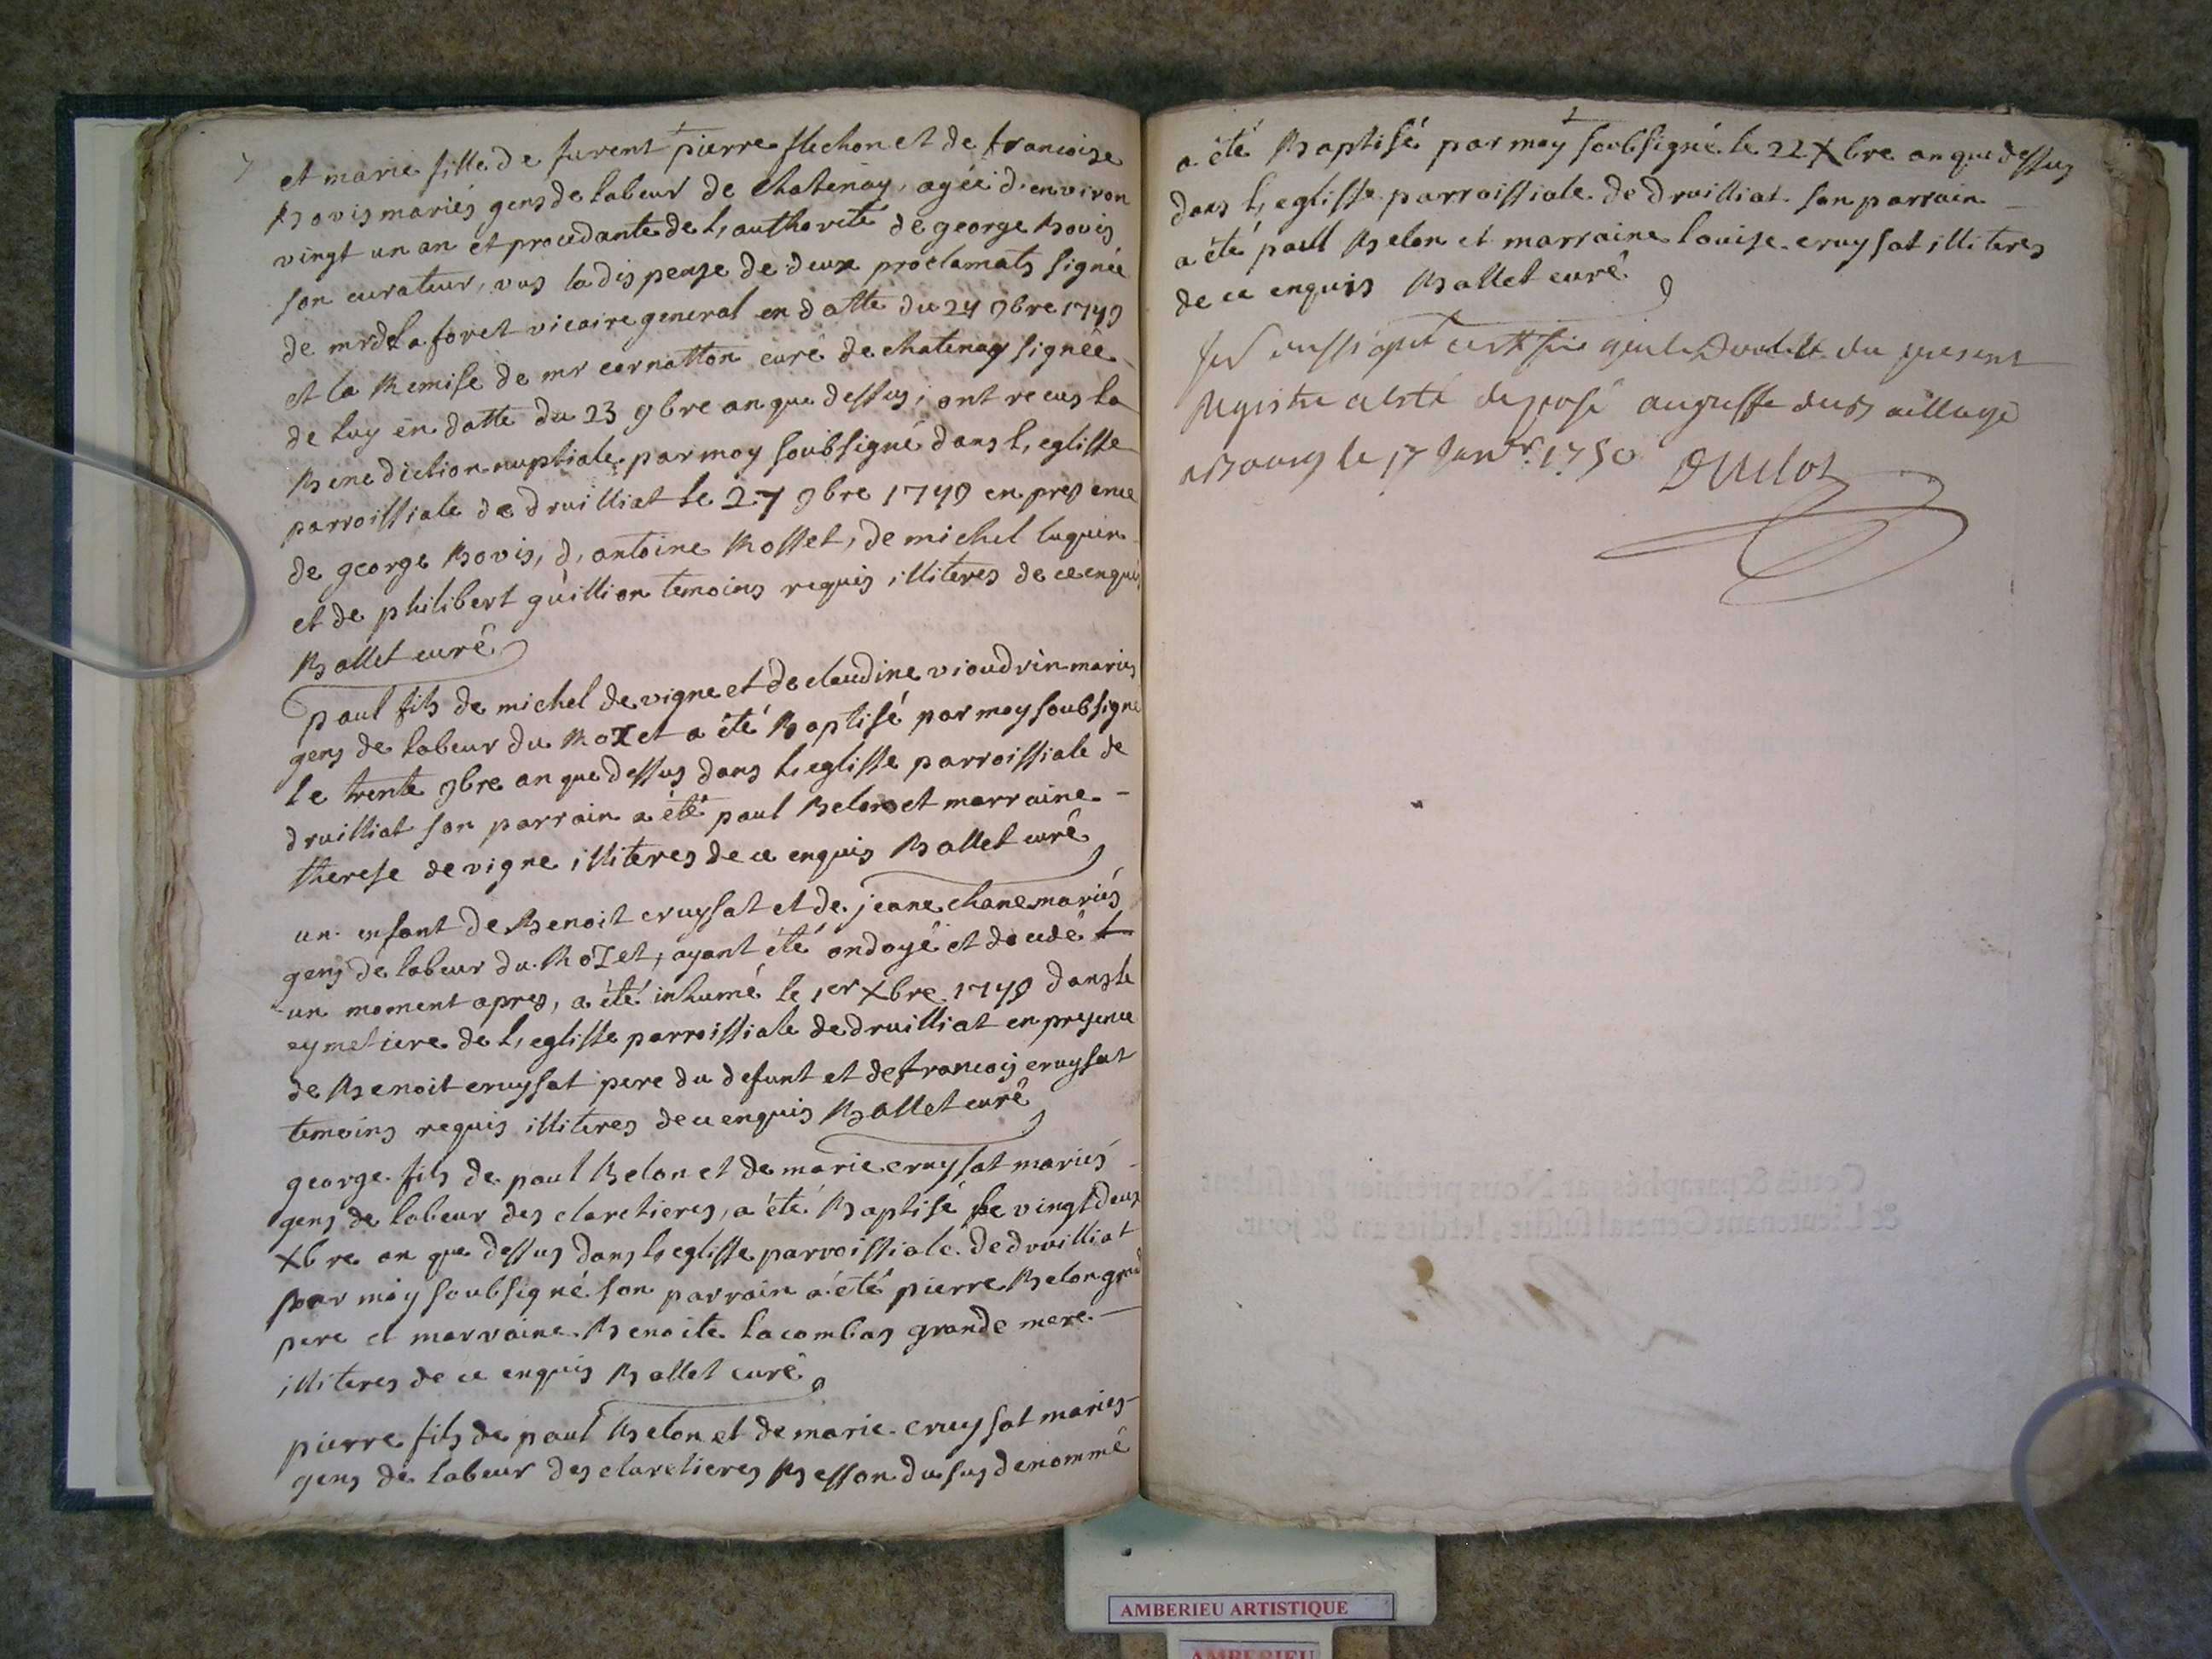 et marie fille de furent pierre flechon et de francoise
Bovis mariés gens de labeur de Chatenay, agée d'environ
vingt un an et procedante de l,authorité de george Bovis
son curateur, vus la dispense de deux proclamats signée
de mr de la foret vicaire general en datte du 24 9bre 1749
et la Remise de mr cornatton curé de chatenay signée
de luy en datte du 23 9bre an que dessus, ont recus la
Benediction nuptiale par moy soubsigné dans l,eglisse
parroissiale de druilliat le 27 9bre 1749 en presence
de george Bovis, d,antoine Rosset, de michel luquin
et de philibert guillion temoins requis illiteres de ce enquis
Ballet curé
paul fils de michel de vigne et de claudine vioudrin mariés
gens de labeur du Rozet a été Baptisé par moy soubsigné
le trente 9bre an que dessus dans l,eglisse parroissiale de
druilliat son parrain a été paul Belon et marraine
therese de vigne illiteres de ce enquis Ballet curé
un enfant de Benoit cruysat et de jeane chanel mariés
gens de labeur du Rozet, ayant été ondoyé et decedé
un moment apres, a été inhumé le 1er Xbre 1749 dans le
cymetiere de l,eglisse parroissiale de druilliat en presence
de Benoit cruysat pere du defunt et de francois cruysat
temoins requis illiteres de ce enquis Ballet curé
george fils de paul Belon et de marie cruysat mariés
gens de labeur des claretieres, a été Baptisé le vingt deux
Xbre an que dessus dans l,eglisse parroissiale de druilliat
par moy soubsigné son parrain a été pierre Belon grand
pere et marraine Benoite lacombas grande mere
illiteres de ce enquis Ballet curé
pierre fils de paul Belon et de marie cruysat mariés
gens de labeur des claretieres Besson du sus denommé
a été Baptisé par moy soubsigné le 22 Xbre an que dessus
dans l,eglisse parroissiale de druilliat son parrain
a été paul Belon et marraine louise cruysat illiteres
de ce enquis Ballet curé
certifie que le double du present
Registre a esté deposé au greffe du Baillage
a Bourg le 17 Janvr. 1750 Duclot
Cottés & paraphés par Nous premier Président
& Lieutenant Général susdit, lesdits an & jour.
AMBERIEU ARTISTIQUE
AMBERIEU